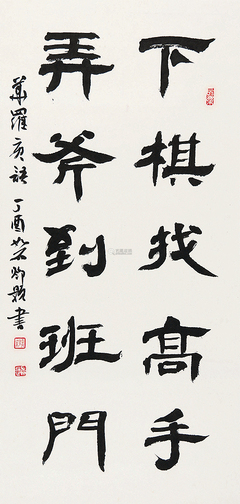 下棋找高手
弄斧到班門
華羅庚語 丁酉
書